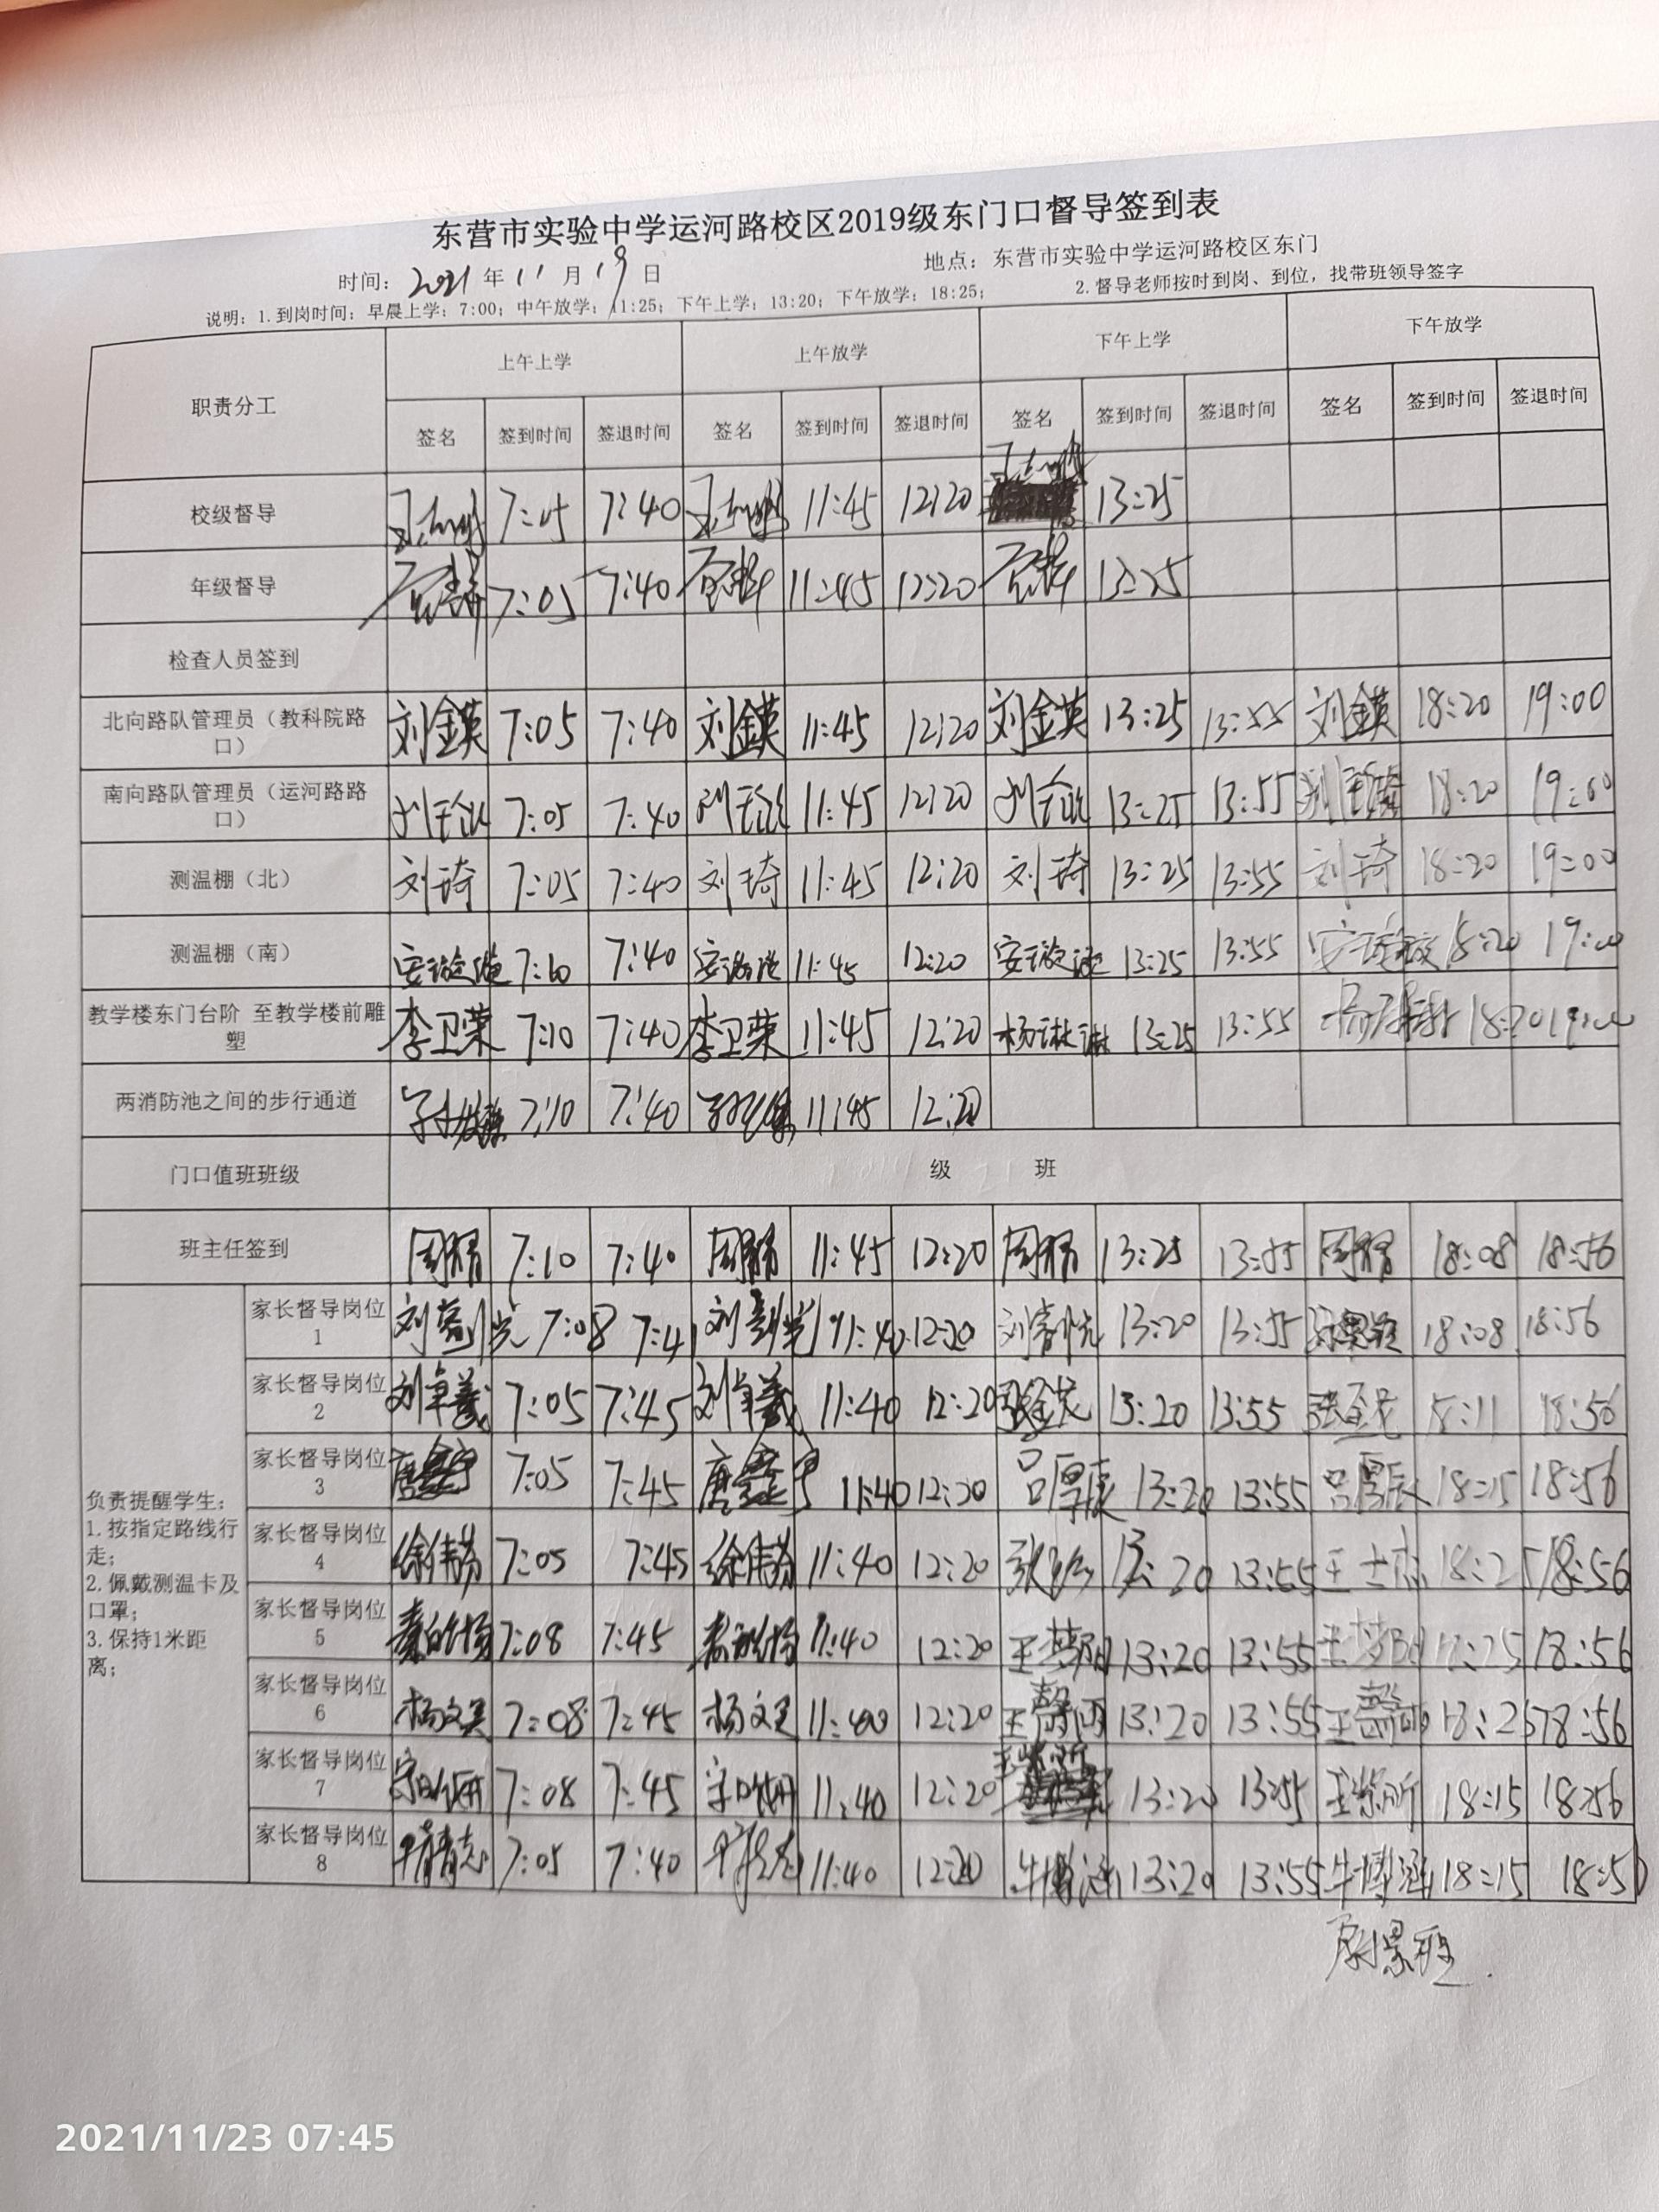 东营市实验中学运河路校区2019级东门口督导签到表
时间: 2021 年 11 月 19 日 地点: 东营市实验中学运河路校区东门
说明: 1.到岗时间: 早晨上学: 7:00; 中午放学: 11:25; 下午上学: 13:20; 下午放学: 18:25; 2.督导老师按时到岗、到位, 找带班领导签字
职责分工 上午上学 上午放学 下午上学 下午放学
签名 签到时间 签退时间 签名 签到时间 签退时间 签名 签到时间 签退时间 签名 签到时间 签退时间
校级督导 7:05 7:40 11:45 12:20 13:25
年级督导 7:05 7:40 11:45 12:20 13:25
检查人员签到
北向路队管理员（教科院路口） 刘金英 7:05 7:40 刘金英 11:45 12:20 刘金英 13:25 13:55 刘金英 18:20 19:00
南向路队管理员（运河路路口） 7:05 7:40 11:45 12:20 13:25 13:55 18:20 19:00
测温棚（北） 刘琦 7:05 7:40 刘琦 11:45 12:20 刘琦 13:25 13:55 刘琦 18:20 19:00
测温棚（南） 7:10 7:40 11:45 12:20 13:25 13:55 18:20 19:00
教学楼东门台阶 至教学楼前雕塑 李卫荣 7:10 7:40 李卫荣 11:45 12:20 杨琳琳 13:25 13:55 18:20 19:00
两消防池之间的步行通道 7:10 7:40 11:45 12:20
门口值班班级 级 班
班主任签到 7:10 7:40 11:45 12:20 13:25 13:55 18:08 18:56
负责提醒学生:
1.按指定路线行走;
2.佩戴测温卡及口罩;
3.保持1米距离;
家长督导岗位1 7:08 7:41 11:40 12:20 13:20 13:55 18:08 18:56
家长督导岗位2 刘卓羲 7:05 7:45 刘卓羲 11:40 12:20 13:20 13:55 18:11 18:56
家长督导岗位3 7:05 7:45 唐鑫宇 11:40 12:20 吕厚辰 13:20 13:55 吕厚辰 18:15 18:56
家长督导岗位4 徐伟芬 7:05 7:45 徐伟芬 11:40 12:20 13:20 13:55 18:25 18:56
家长督导岗位5 7:08 7:45 11:40 12:20 13:20 13:55 18:25 18:56
家长督导岗位6 杨文昊 7:08 7:45 杨文昊 11:40 12:20 王馨雨 13:20 13:55 王馨雨 18:25 18:56
家长督导岗位7 7:08 7:45 11:40 12:20 13:20 13:55 18:15 18:56
家长督导岗位8 7:05 7:40 11:40 12:20 牛博涵 13:20 13:55 牛博涵 18:15 18:56
2021/11/23 07:45